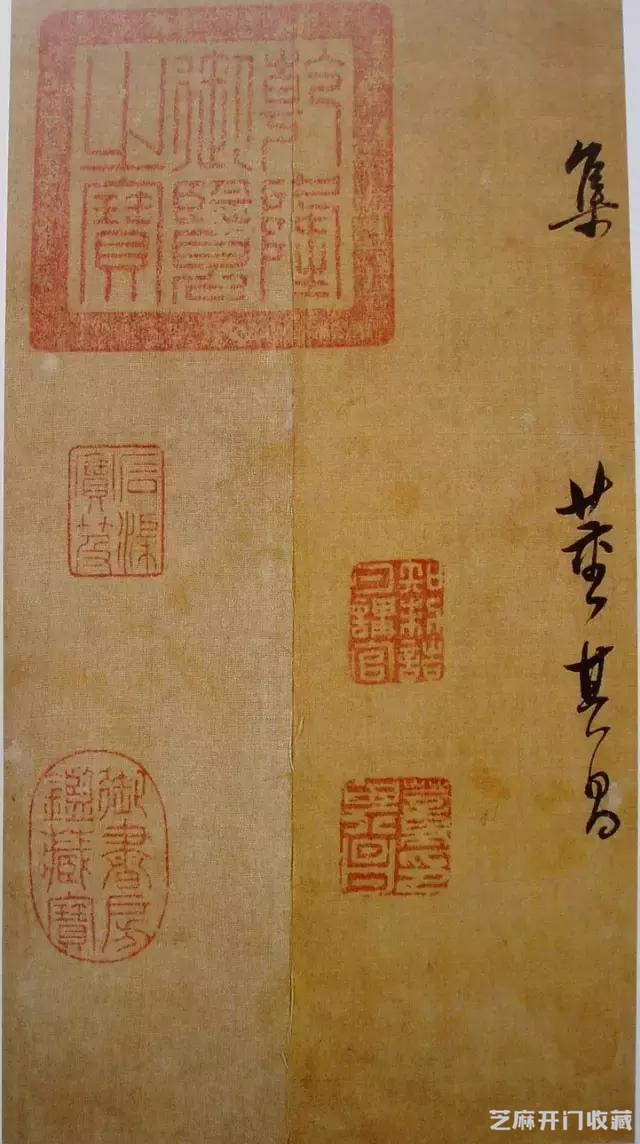 集
董其昌
知制誥
日講官
董其昌印
乾隆
御覽
之寶
石渠
寶笈
御書房
鑑藏寶
芝麻开门收藏